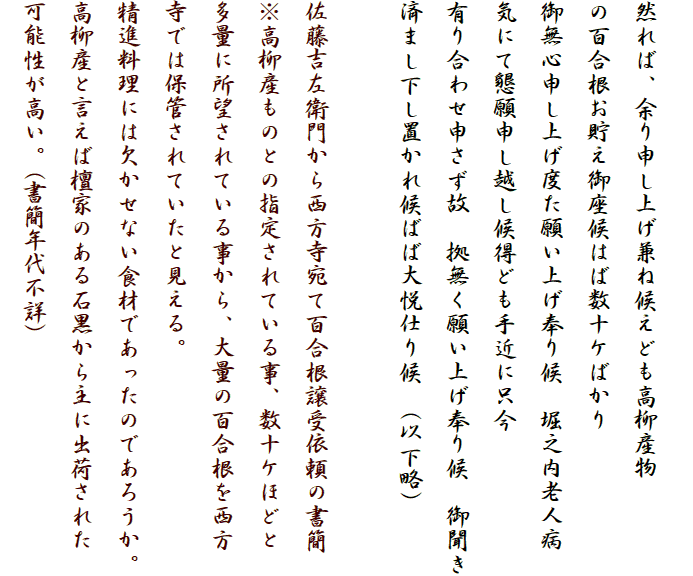 然れば、余り申し上げ兼ね候えども高柳産物
の百合根お貯え御座候はば数十ケばかり
御無心申し上げ度た願い上げ奉り候　堀之内老人病
気にて懇願申し越し候得ども手近に只今
有り合わせ申さず故　拠無く願い上げ奉り候　御聞き
済まし下し置かれ候ばば大悦仕り候　（以下略）
佐藤吉左衛門から西方寺宛て百合根譲受依頼の書簡
※高柳産ものとの指定されている事、数十ケほどと
多量に所望されている事から、大量の百合根を西方
寺では保管されていたと見える。
精進料理には欠かせない食材であったのであろうか。
高柳産と言えば檀家のある石黒から主に出荷された
可能性が高い。（書簡年代不詳）